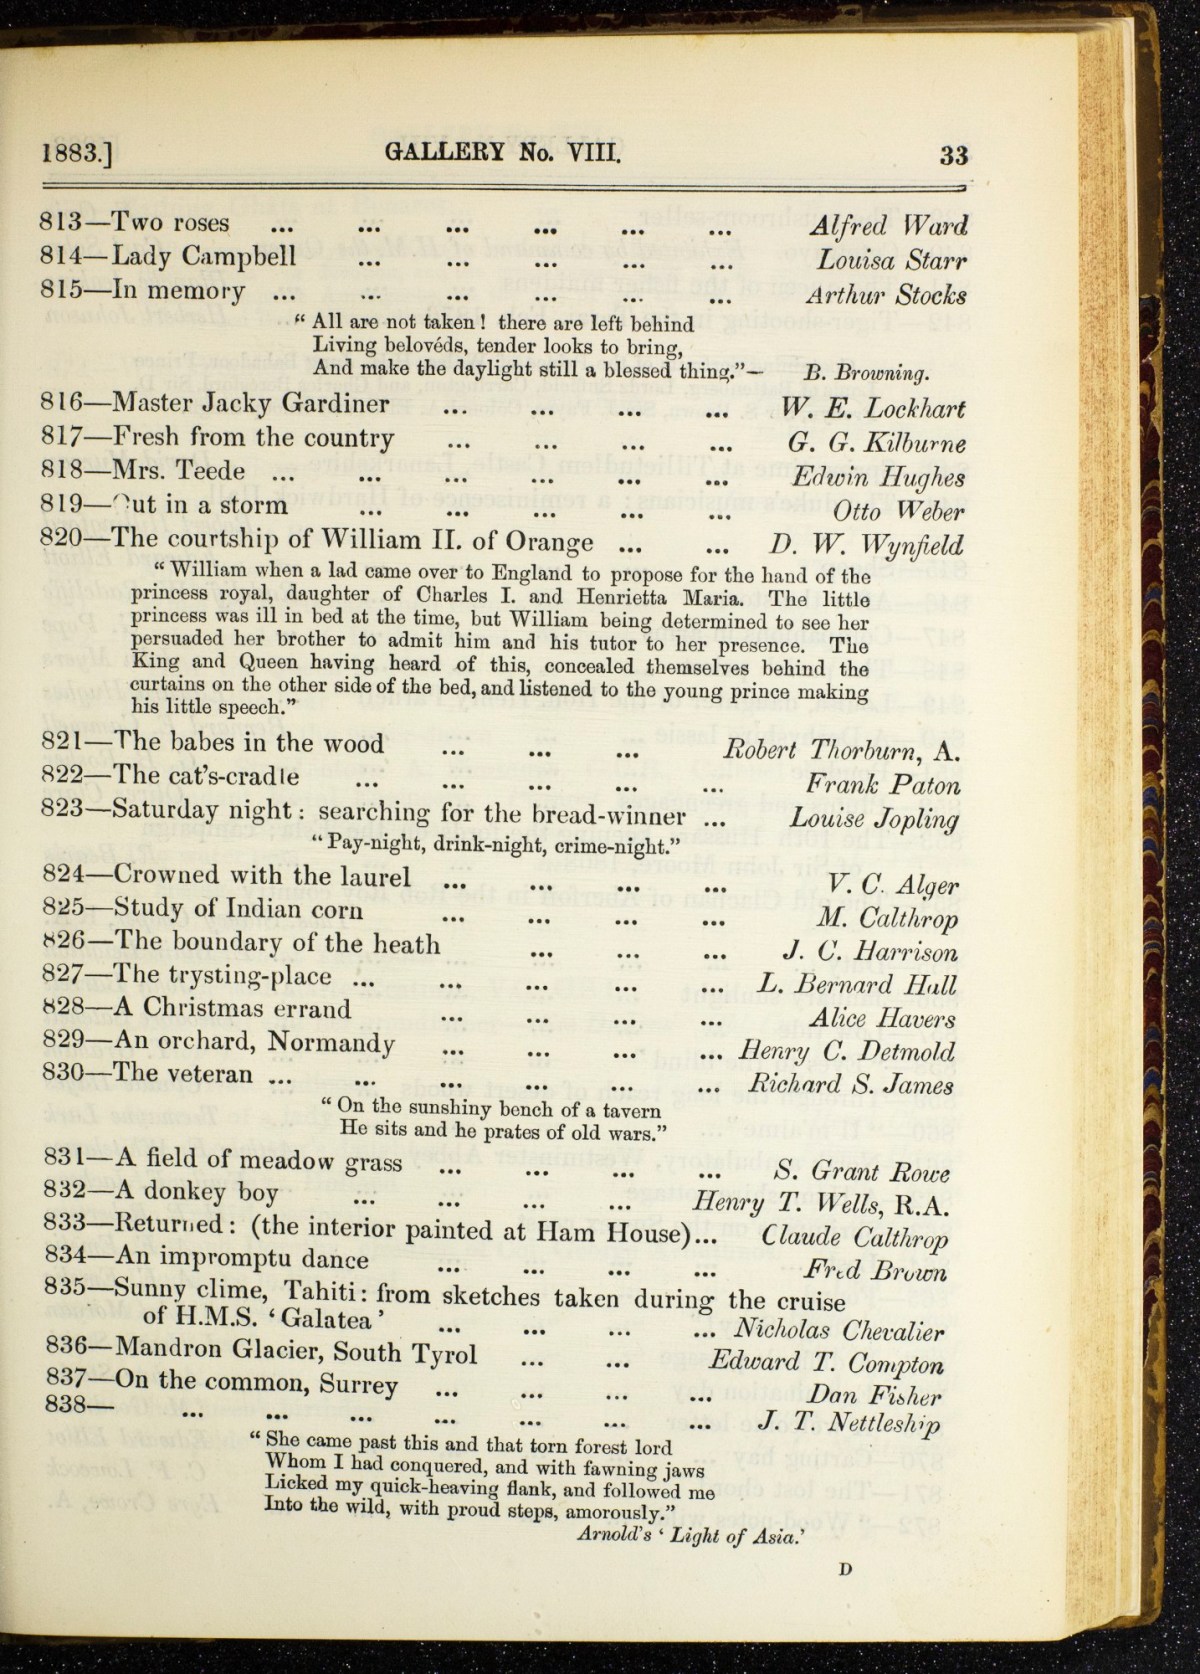 1883.] GALLERY No. VIII. 33
813—Two roses ... ... ... ... ... ... Alfred Ward
814—Lady Campbell ... ... ... ... ... Louisa Starr
815—In memory ... ... ... ... ... ... Arthur Stocks
“ All are not taken ! there are left behind
Living belovéds, tender looks to bring,
And make the daylight still a blessed thing.”— B. Browning.
816—Master Jacky Gardiner ... ... ... ... W. E. Lockhart
817—Fresh from the country ... ... ... ... G. G. Kilburne
818—Mrs. Teede ... ... ... ... ... ... Edwin Hughes
819—Out in a storm ... ... ... ... ... Otto Weber
820—The courtship of William II. of Orange ... ... D. W. Wynfield
“ William when a lad came over to England to propose for the hand of the
princess royal, daughter of Charles I. and Henrietta Maria. The little
princess was ill in bed at the time, but William being determined to see her
persuaded her brother to admit him and his tutor to her presence. The
King and Queen having heard of this, concealed themselves behind the
curtains on the other side of the bed, and listened to the young prince making
his little speech.”
821—The babes in the wood ... ... ... Robert Thorburn, A.
822—The cat's-cradle ... ... ... ... ... Frank Paton
823—Saturday night : searching for the bread-winner ... Louise Jopling
“ Pay-night, drink-night, crime-night.”
824—Crowned with the laurel ... ... ... ... V. C. Alger
825—Study of Indian corn ... ... ... ... M. Calthrop
826—The boundary of the heath ... ... ... J. C. Harrison
827—The trysting-place ... ... ... ... ... L. Bernard Hall
828—A Christmas errand ... ... ... ... Alice Havers
829—An orchard, Normandy ... ... ... ... Henry C. Detmold
830—The veteran ... ... ... ... ... ... Richard S. James
“ On the sunshiny bench of a tavern
He sits and he prates of old wars.”
831—A field of meadow grass ... ... ... ... S. Grant Rowe
832—A donkey boy ... ... ... ... Henry T. Wells, R.A.
833—Returned : (the interior painted at Ham House)... Claude Calthrop
834—An impromptu dance ... ... ... ... Fred Brown
835—Sunny clime, Tahiti : from sketches taken during the cruise
of H.M.S. ‘ Galatea ’ ... ... ... ... Nicholas Chevalier
836—Mandron Glacier, South Tyrol ... ... Edward T. Compton
837—On the common, Surrey ... ... ... ... Dan Fisher
838— ... ... ... ... ... ... ... J. T. Nettleship
“ She came past this and that torn forest lord
Whom I had conquered, and with fawning jaws
Licked my quick-heaving flank, and followed me
Into the wild, with proud steps, amorously.”
Arnold's ‘ Light of Asia.’
D